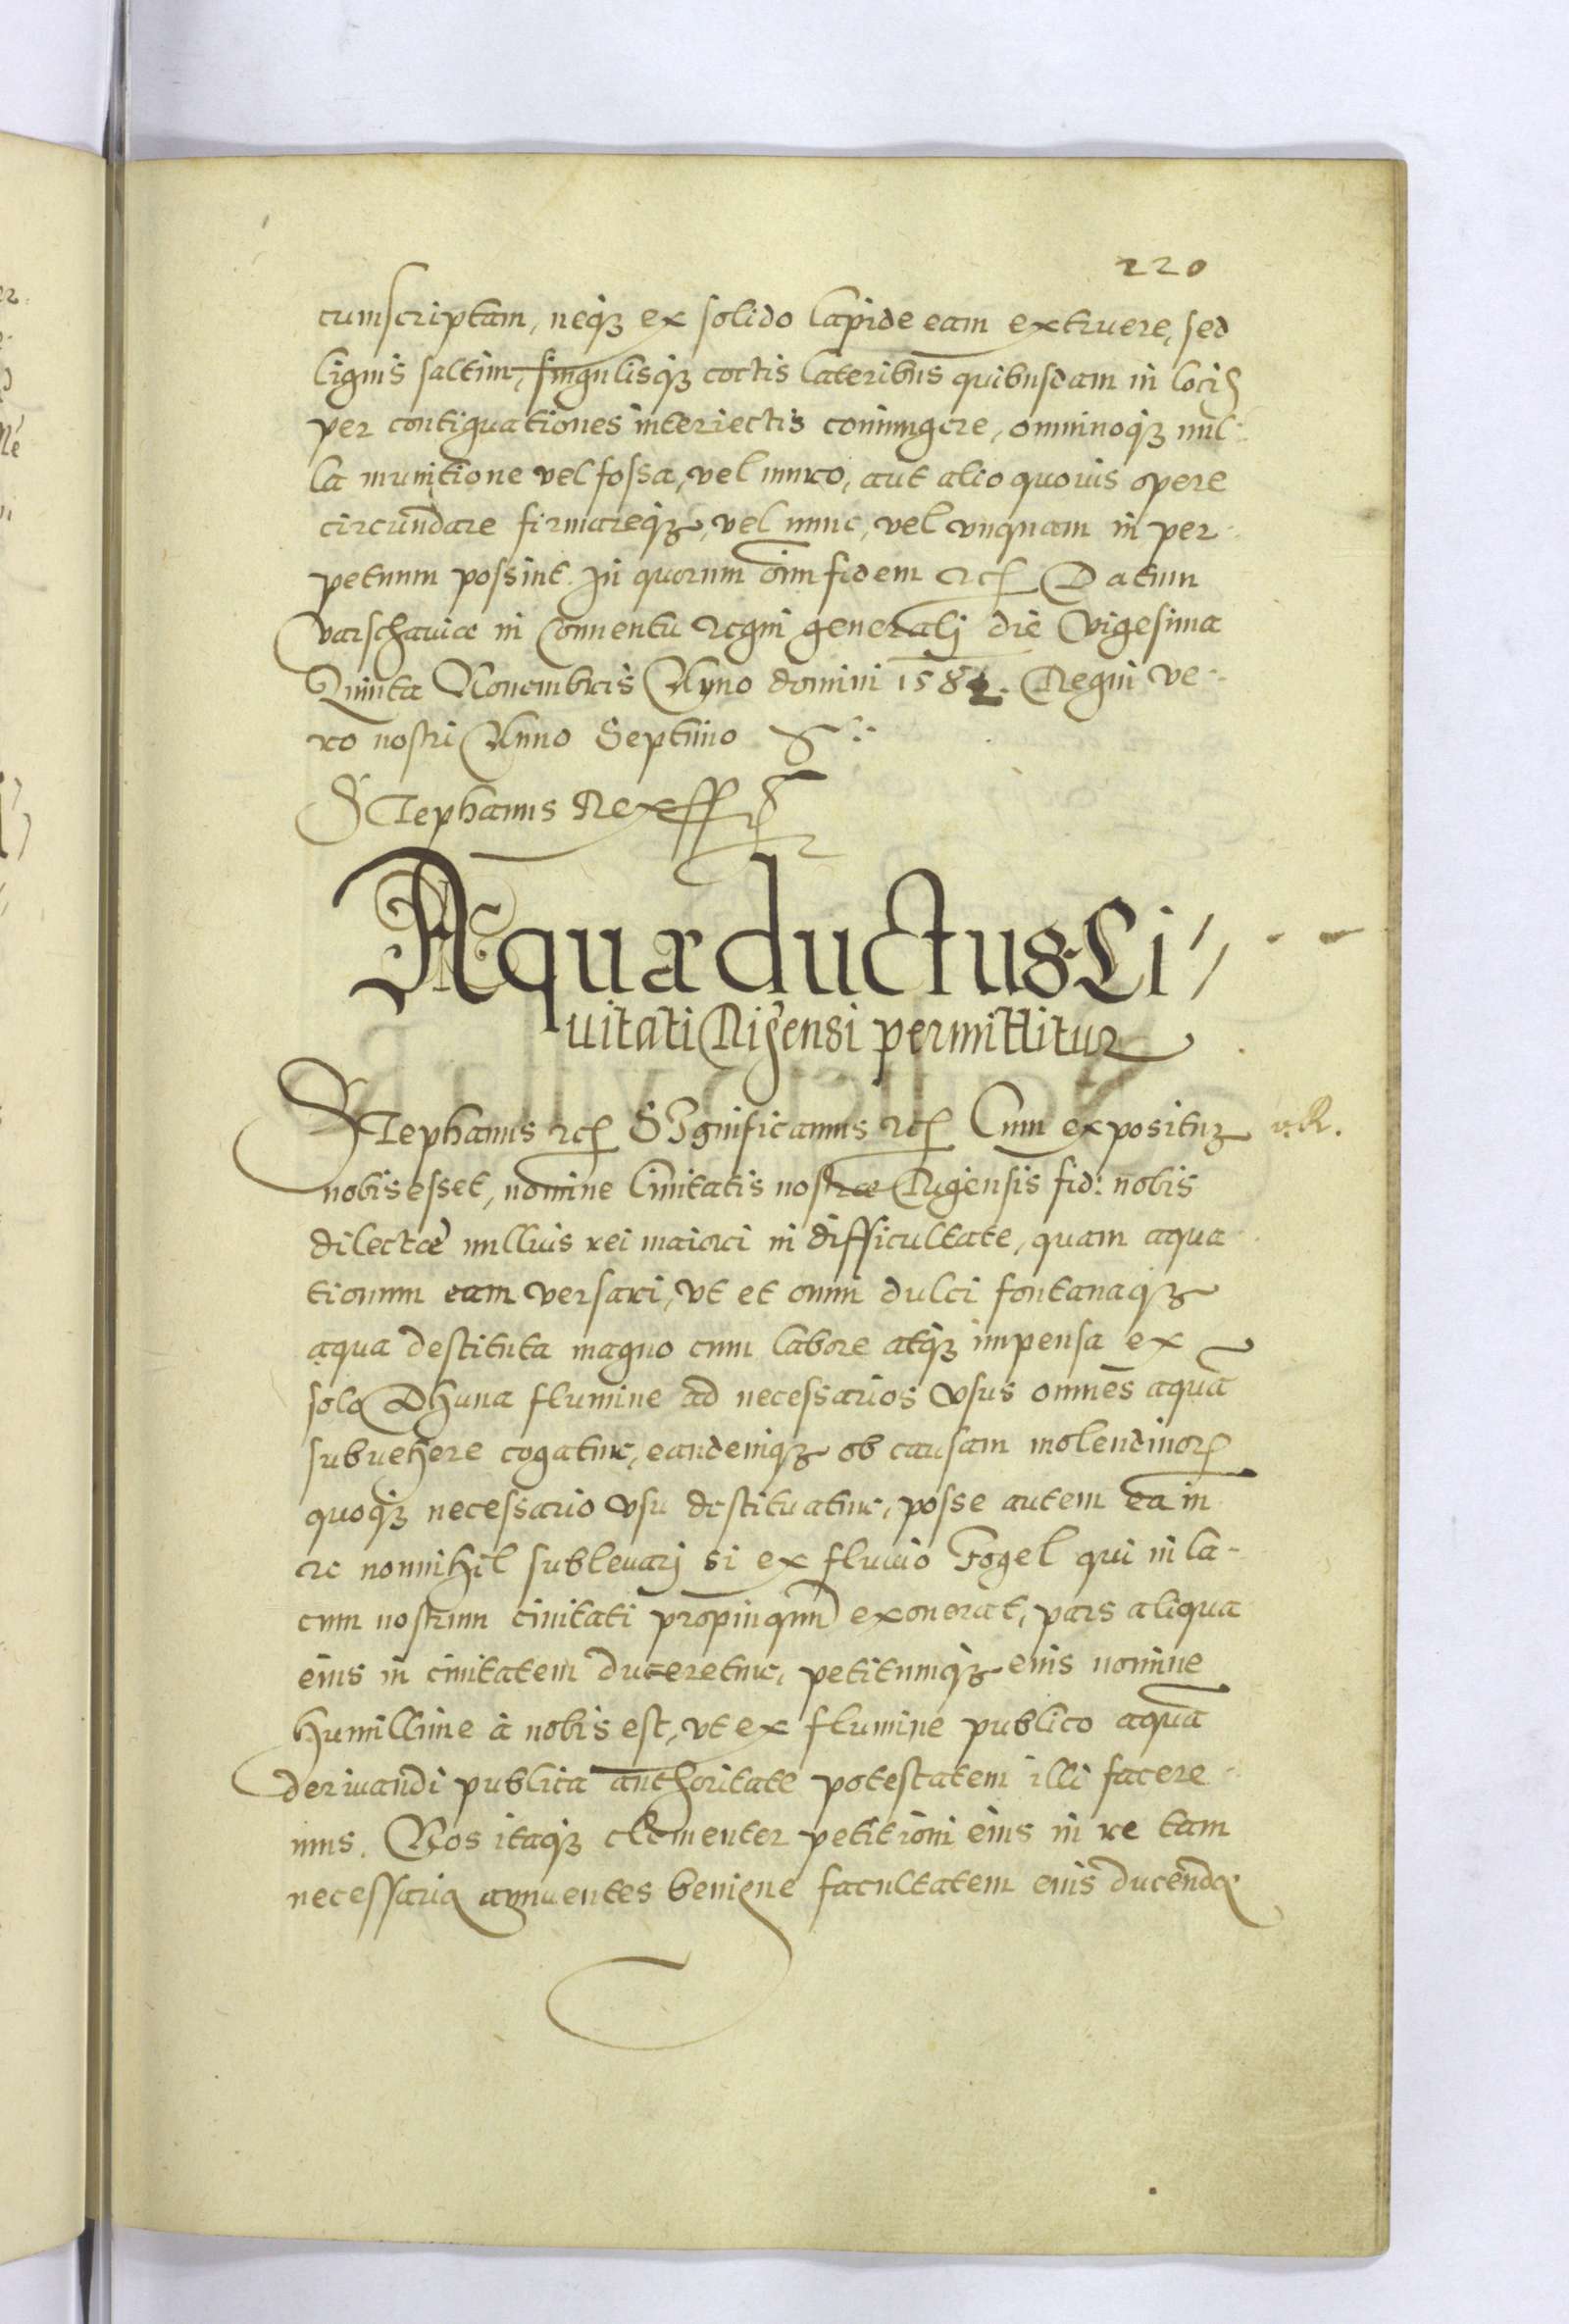 220
cumscriptam, neqꝫ ex solido lapide eam extruere, sed
lignis saltim, singulisqꝫ coctis lateribus quibusdam in locis
per contiguationes interiectis coniungere, omninoqꝫ nul-
la munitione vel fossa, vel muro, aut alio quovis opere
circundare firmareqꝫ, vel nunc, vel vnquam in per-
petuum possint. In quorum oim̄ fidem ꝛcꝭ Datum
Varschauiæ in Conuentu regni generalj die Vigesima
Quinta Nouembris Anno domini 1582. Regni ve-
ro nostri Anno Septimo
Stephanus Rex ssᵗ
Aquæductus Ci,,
uitati Rigensi permittitur
Stephanus ꝛcꝭ Significamus ꝛcꝭ Cum expositū
v. R.
nobis esset, nomine Ciuitatis nostræ Rigensis fid: nobis
dilectæ nullius rei maiori in difficultate, quam aqua
tionum eam versari, vt et omni dulci fontanaqꝫ
aqua destituta magno cum labore atqꝫ impensa ex
solo Dhuna flumine ad necessarios vsus omnes aquā
subuehere cogatur, eandemqꝫ ob causam molendinorꝭ
quoqꝫ necessario vsu destituatur, posse autem ea in
re nonnihil subleuarj si ex fluuio Fogel qui in la-
cum nostrum ciuitati propinquum exonerat, pars aliqua
eius in ciuitatem duceretur, petitumqꝫ eius nomine
humillime à nobis est, vt ex flumine publico aquā
deriuandi publica authoritate potestatem illi facere-
mus. Nos itaqꝫ clementer petitioni eius in re tam
necessaria annuentes benigne facultatem eius ducendę